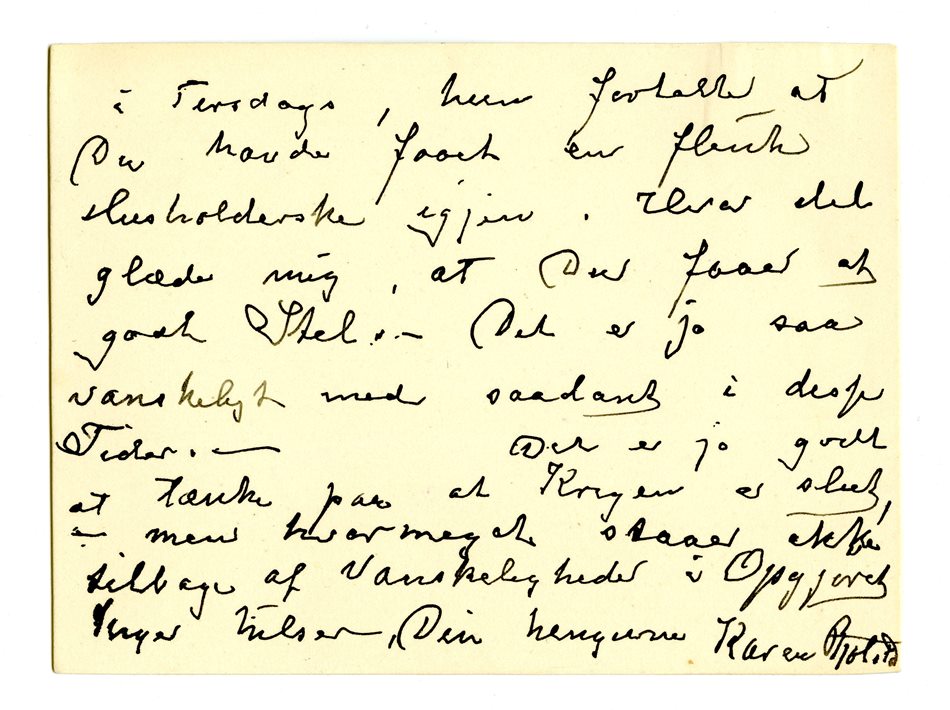 i Tirsdags, hun fortalte at
Du havde faaet en flink
Husholderske igjen. Hvor det
glæder mig, at Du faaer et
godt Stel. — Det er jo saa
vanskeligt med saadant i disse
Tider. — Det er jo godt
at tænke paa at Krigen er slut,
— men hvormeget staaer ikke
tilbage af Vanskeligheder i Opgjøret
Hilsen, Din hengivne Karen